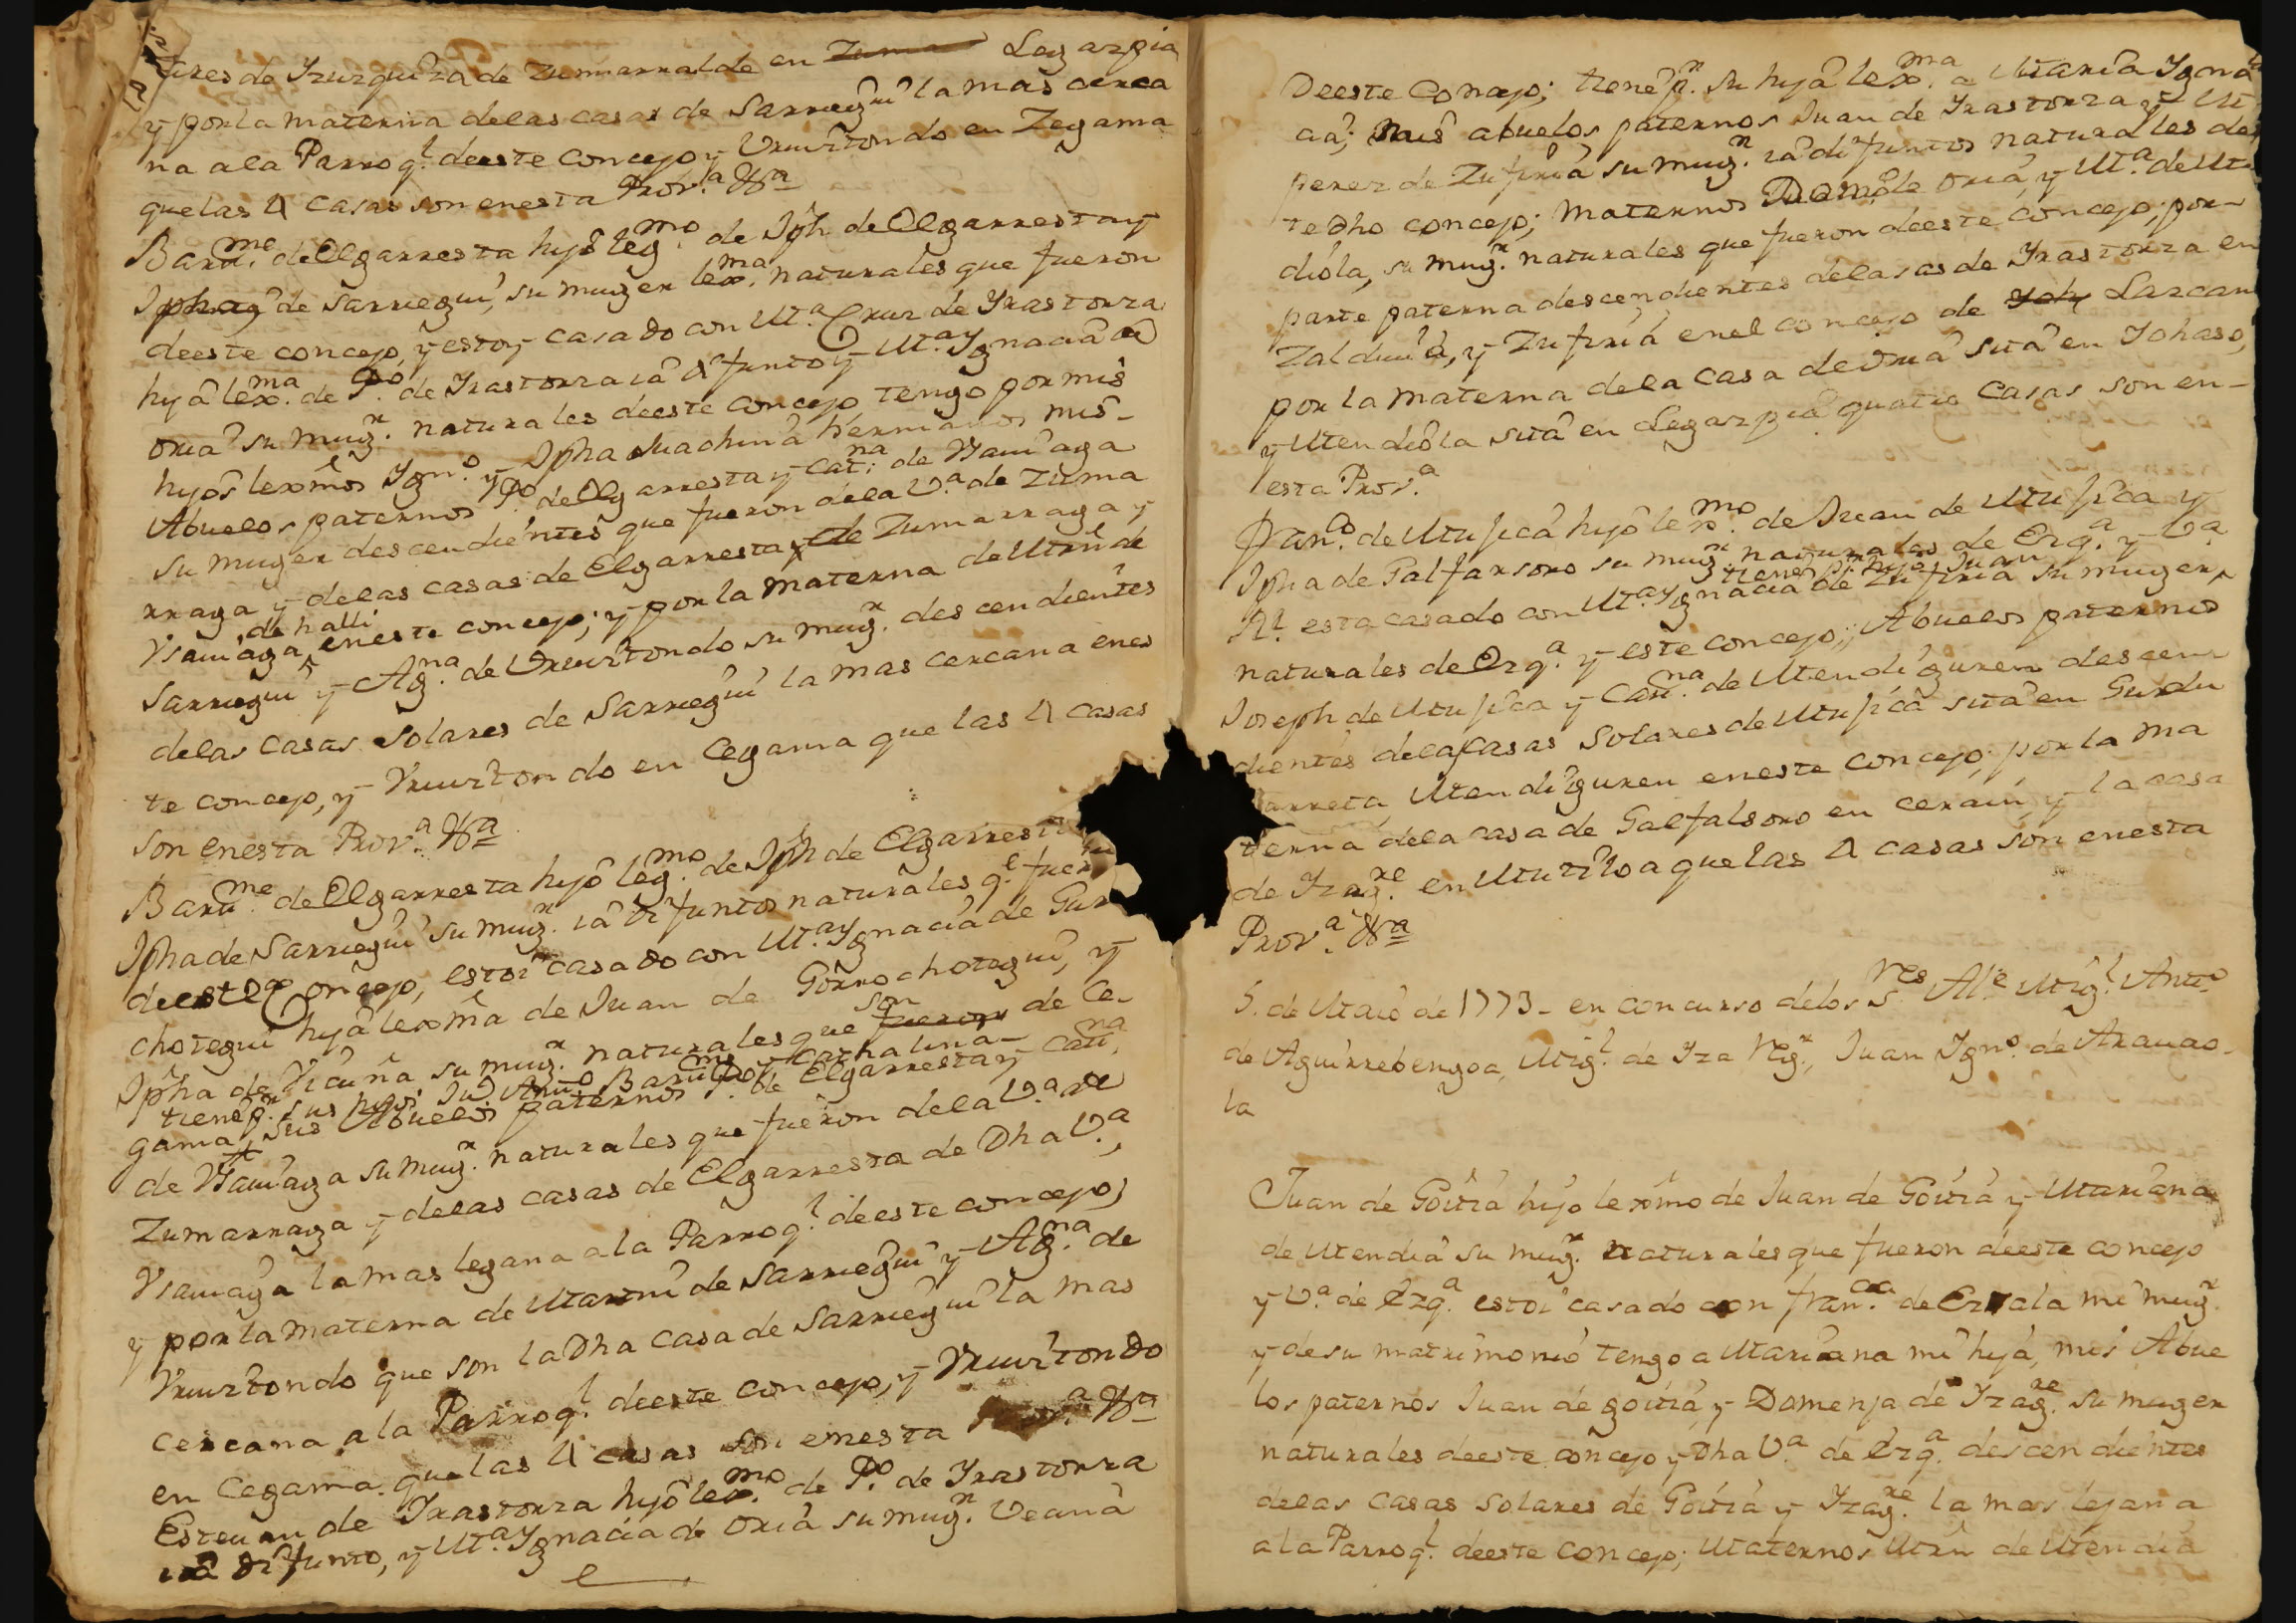 tires de Yzurquiza de Zumarraalde en Legazpia
y por la materna de las casas de Sarriegui la mas cerca
na a la Parroq.l deeste concejo y Vrruitiondo en Zegama
que las 4 casas son en esta Prov.a &a
Baru.me de Elgarresta hijo leg.mo de Jph de Elgarresta y
Jpha de Sarriegui, su muger lex.ma naturales que fueron
deeste concejo, y estoy casado con M.a Cruz de Yrastorza
hija lex.ma de P.o de Yrastorza ia difunto y M.a Ygnacia de
oria su mug.r naturales deeste concejo tengo por mis
hijos leximos Ygn.o y Jpha Juachina hermanos mis
Abuelos paternos P.o de Elgarresta y Cat.na de
su muger descendientes que fueron de la V.a de Zuma
rraga y de las casas de Elgarresta de Zumarraga y
de halli
eneste concejo; y por la materna de Mrñ de
Sarriegui y Ag.na de Vrruitiondo su mug.r descendientes
de las casas solares de Sarriegui la mas cercana enes
te concejo, y Vrruitiondo en Cegama que las 4 casas
son enesta Prov.a &a
Baru.me de Elgarresta hijo leg.mo de Jph de Elgarresta
Jpha de Sarriegui su mug.r ia difuntos naturales q.e fuer
deeste Concejo, estoi casado con M.a Ygnacia de Gur
chotegui hija lexma de Juan de Gorrochotegui, y
son
Jpha de Vicuña su mug.r naturales que fueron de Ce-
tiene p.r sus hijos Ju.o Anto Baru.me y Cathalina
gama, sus Abuelos paternos P.o de Elgarresta y Cat.na
de su mug.r naturales que fueron de la V.a de
Zumarraga y de las casas de Elgarresta de Dha V.a,
la mas legana a la Parroq.l deeste concejo,
y por la materna de Martin de Sarriegui y Ag.na de
Vrruitiondo que son la Dha casa de Sarriegui la mas
cercana a la Parroq.l deeste concejo, y Vrruitiondo
en Cegama. que las 4 casas son enesta Prov.a &a
Esteuan de Yrastorza hijo lex.mo de P.o de Yrastorza
ia difunto, y M.a Ygnacia de oria su mug.r Vecina
Deeste Concejo; tiene p.r su hija lex.ma a Maria Ygna
cia; mis abuelos paternos Juan de Yrastorza y M
perez de Zufiria su mug.r ia difuntos naturales de es
te Dho concejo; maternos Dom.o de oria, y M.a de M
diola, su mug.r naturales que fueron deeste concejo, por
parte paterna descendientes de las as de Yrastorza en
Zalduuia, y Zufiria en el concejo de Lazcan
por la materna de la casa de oria sita en Yohaso,
y Mendiola sita en Legazpia quatro casas son en-
esta Prov.a
Fran.co de Mujica hijo lex.mo de Juan de Mujica y
Jpha de Galfarsoro su mug.r naturales de Ezq.a y V.a
tiene p.r hijo Juan
R.l esta casado con M.a Ygnacia de Zufiria su muger,
naturales de Ezq.a y este concejo; Abuelos paternos
Joseph de Mujica y Cat.na de Mendiguren descen
dientes de las Casas Solares de Mujica sita en Gudu
garreta, Mendiguren eneste concejo; por la ma
terna de la casa de Galfalsoro en cerain y la casa
de Yzag.re en Mutiloa que las 4 casas son enesta
Prov.a &a
5. de Maio de 1773 - en concurso de los S.res Al.e Mig.l Ant.o
de Aguirrebengoa, Mig.l de Yza Reg.r, Juan Ygn.o de Arauao-
la
Juan de Goitia hijo leximo de Juan de Goitia y Mariana
de Mendia su mug.r naturales que fueron deeste concejo
y V.a de Ezq.a estoi casado con fran.ca de Ezala mi mug.r
y de su matrimonio tengo a Mariana mi hija, mis Abue
los paternos Juan de goitia, y Domenja de Yzag.re su muger
naturales deeste concejo y Dha V.a de Ezq.a descendientes
de las casas solares de Goitia y Yzag.re la mas lejana
a la Parroq.l deeste concejo; Maternos Mrñ de Mendia